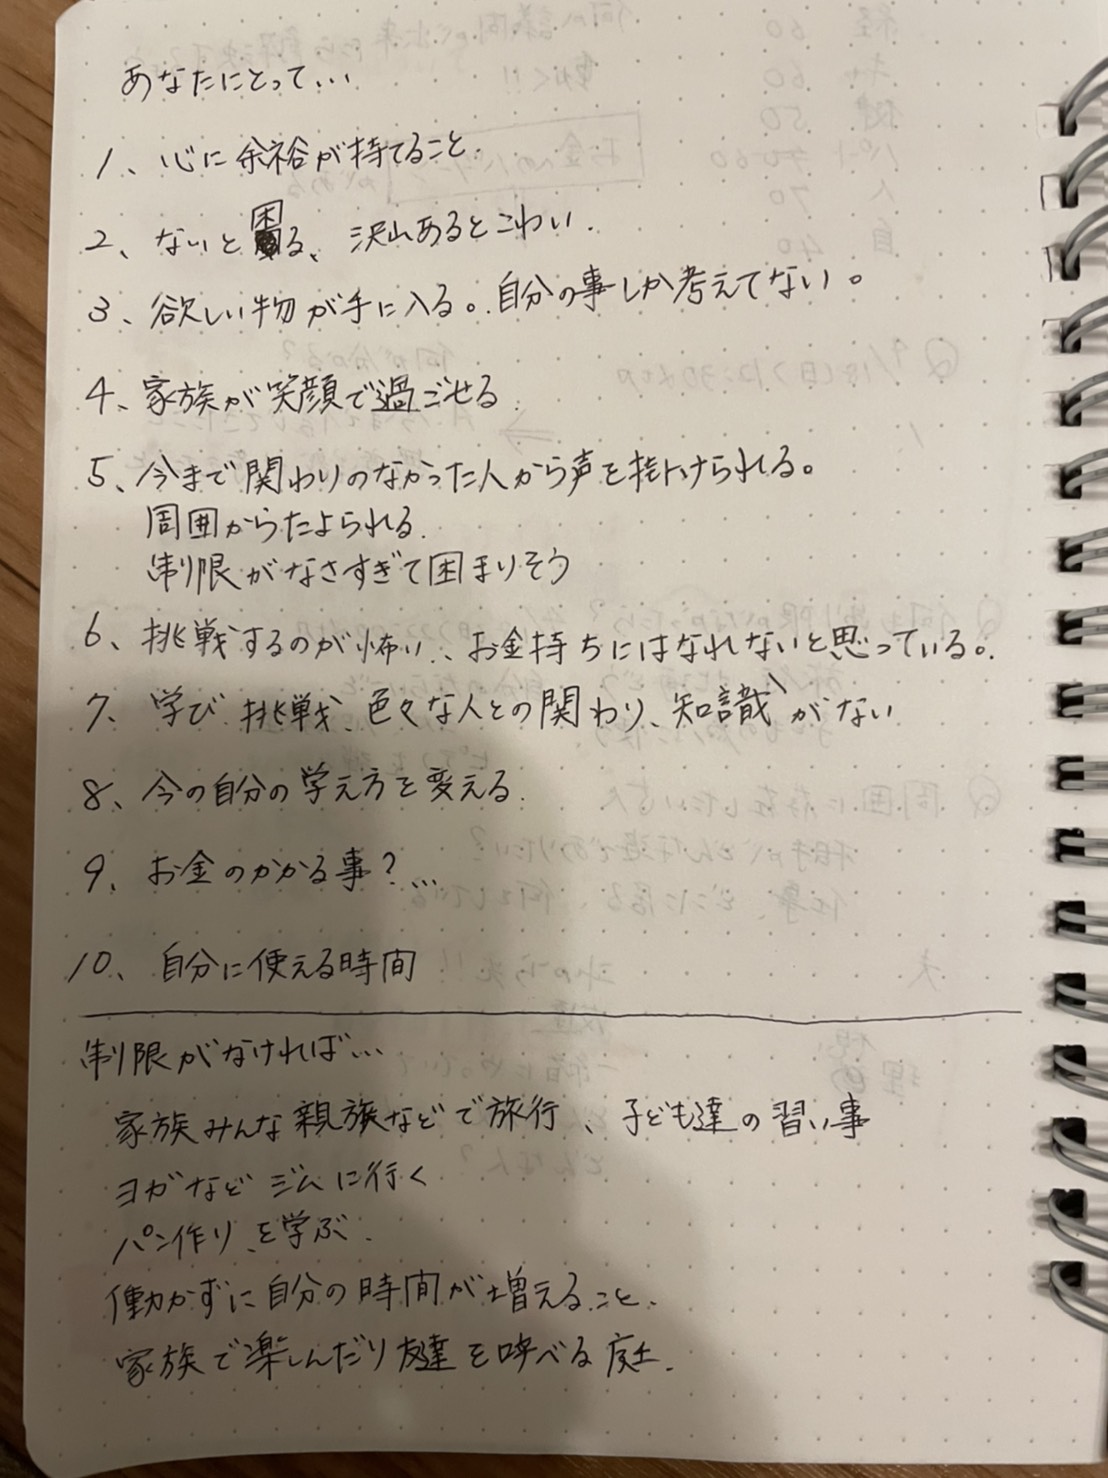 あなたにとって…
1、心に余裕が持てること.
2、ないと困る、沢山あるとこわい.
3、欲しい物が手に入る。自分の事しか考えてない。
4、家族が笑顔で過ごせる
5、今まで関わりのなかった人から声を掛けられる。
周囲からたよられる.
制限がなさすぎて困まりそう
6、挑戦するのが怖い、お金持ちにはなれないと思っている。
7、学び、挑戦、色々な人との関わり、知識がない
8、今の自分の学え方を変える.
9、お金のかかる事?…
10、自分に使える時間
制限がなければ…
家族みんな親族などで旅行、子ども達の習い事
ヨガなどジムに行く
パン作りを学ぶ.
働かずに自分の時間が増えること、
家族で楽しんだり友達を呼べる庭.